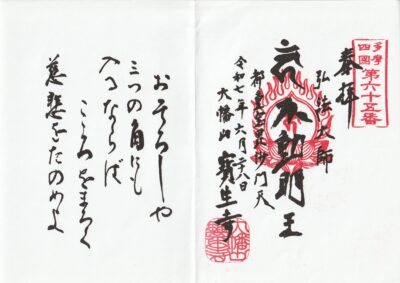 多摩
四國
第六十五番
奉拝
弘法大師
不動明王
都重宝毘沙門天
令和七年六月廿八日
大幡山 寶生寺
おそろしや
三つの角にも
入るならば
こころをまろく
慈悲をたのめよ